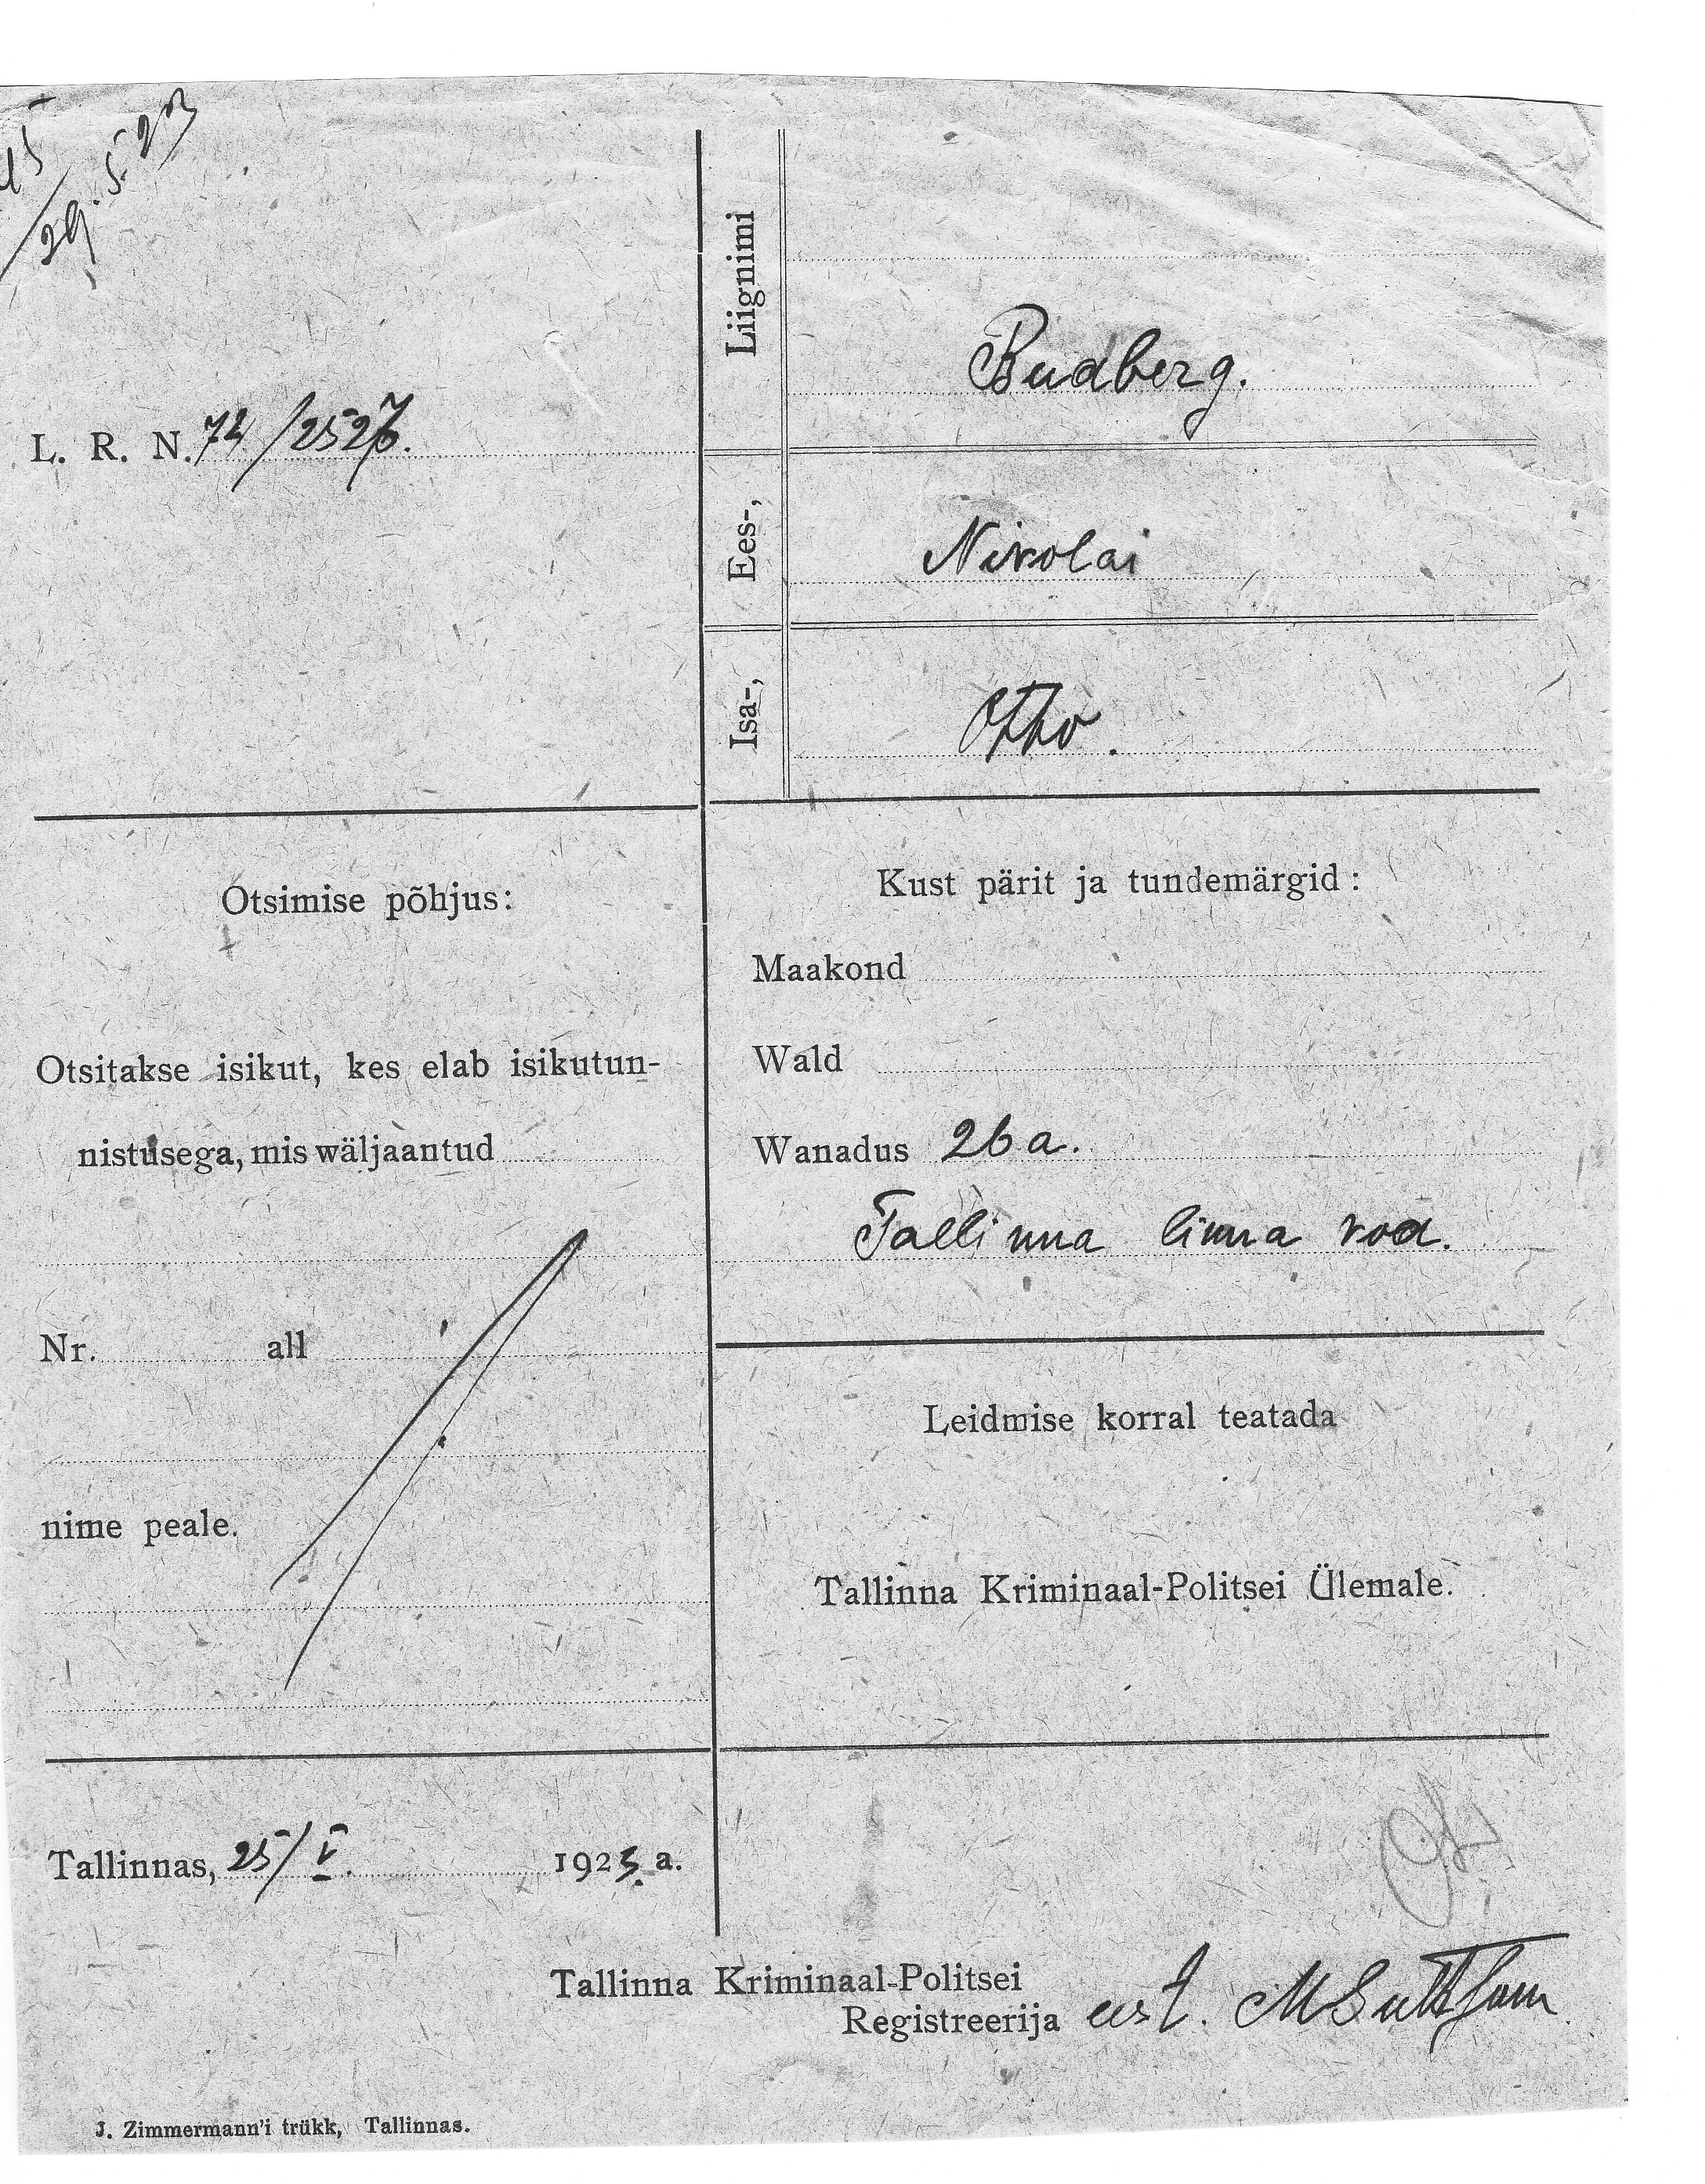 29. 5. 23
L. R. N. 74/2527.
Liignimi
Budberg.
Ees-,
Nikolai
Isa-,
Otto.
Otsimise põhjus:
Otsitakse isikut, kes elab isikutun-
nistusega, mis wäljaantud
Nr. all
nime peale.
Kust pärit ja tundemärgid:
Maakond
Wald
Wanadus 26 a.
Tallinna linna kod.
Leidmise korral teatada
Tallinna Kriminaal-Politsei Ülemale.
Tallinnas, 25/V. 1923. a.
Tallinna Kriminaal-Politsei
Registreerija eest.
J. Zimmermann'i trükk, Tallinnas.